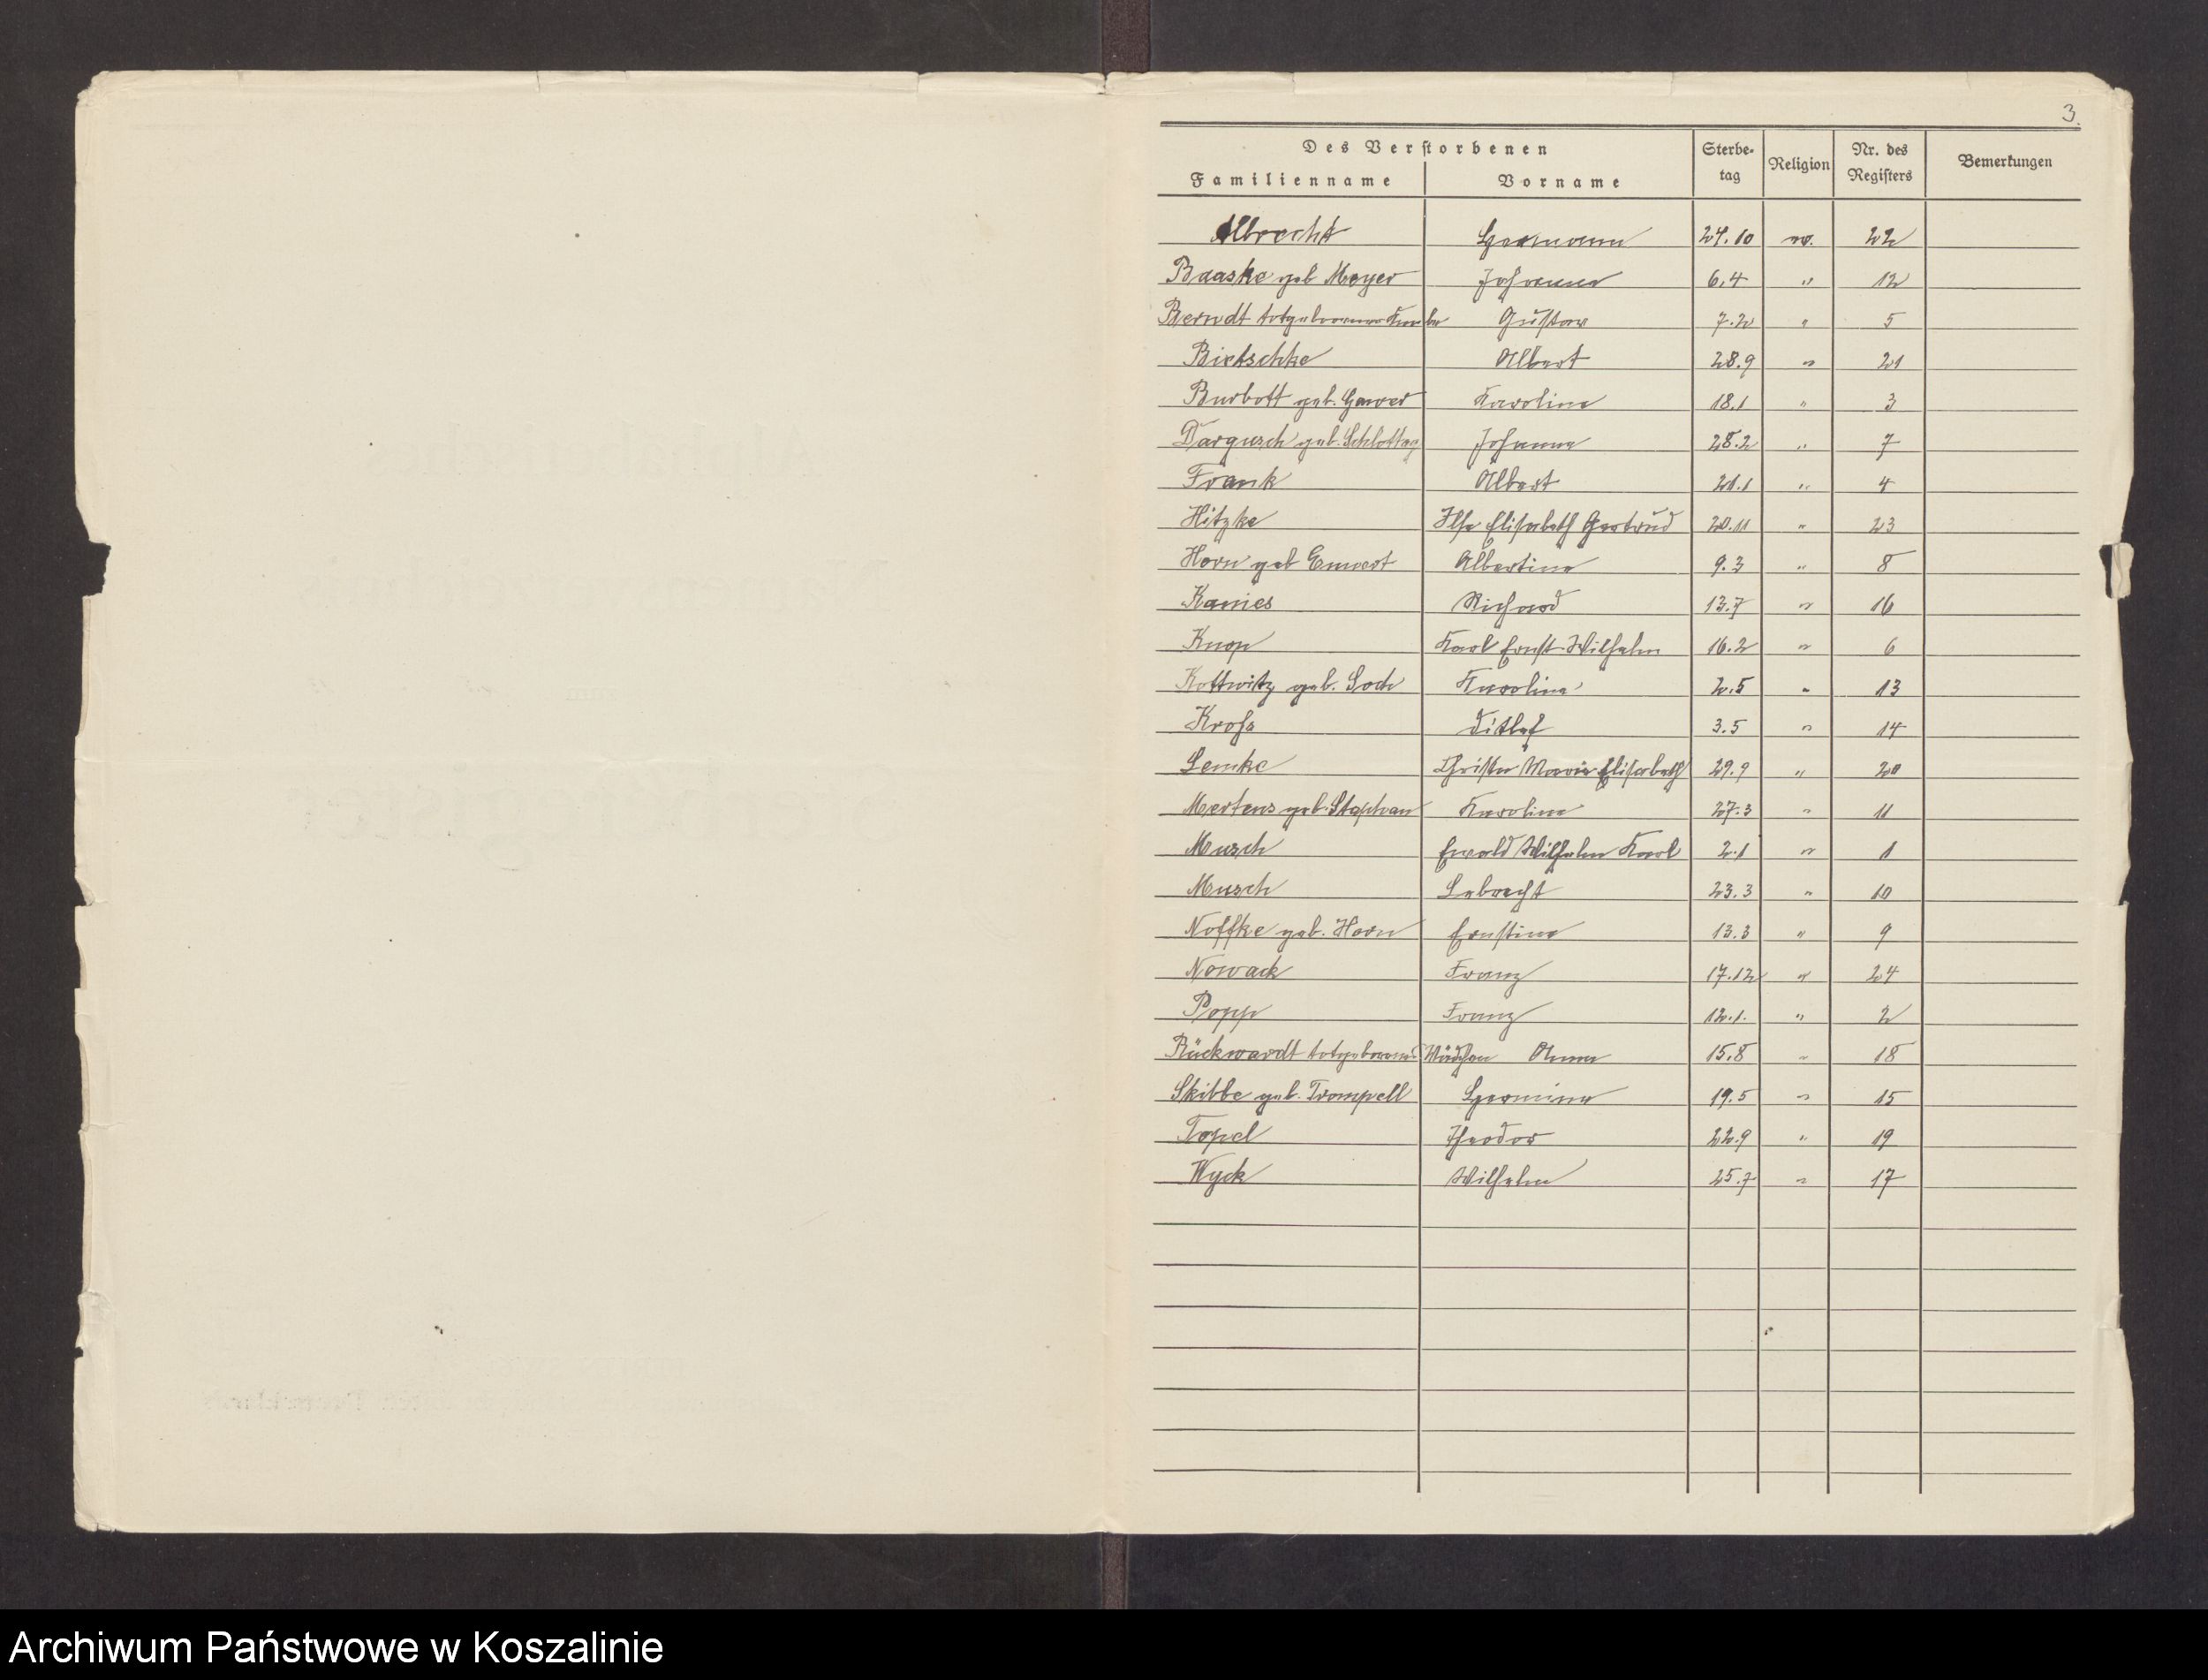 3.
Des Verstorbenen
Sterbe-tag
Religion
Nr. des Registers
Bemerkungen
Familienname Vorname
Albrecht Hermann 24.10 ev. 22
Baaske geb Meyer Johanna 6.4 " 12
Berndt totgeborener Knabe Gustav 7.2 " 5
Bietschke Albert 28.9 " 21
Burbott geb. Karoline 18.1 " 3
Dargusch geb. Schlottag Johanna 28.2 " 7
Frank Albert 21.1 " 4
Hitzke Ilse Elisabeth Gertrud 20.11 " 23
Horn geb Albertine 9.3 " 8
Kanies Richard 13.7 " 16
Knop Karl Ernst Wilhelm 16.2 " 6
Kottwitz geb. Karoline 2.5 " 13
Kroß Ditlef 3.5 " 14
Lemke Maria Elisabeth 29.9 " 20
Mertens geb. Stephan Karoline 27.3 " 11
Musch Ewald Wilhelm Karl 2.1 " 1
Musch Lebrecht 23.3 " 10
Noffke geb. Horn Ernstine 13.3 " 9
Nowack Franz 17.12 " 24
Popp Franz 12.1. " 2
Rückwardt totgeborenes Mädchen Anna 15.8 " 18
Skibbe geb. Trompell Hermine 19.5 " 15
Topel Theodor 22.9 " 19
Wyck Wilhelm 25.7 " 17
Archiwum Państwowe w Koszalinie